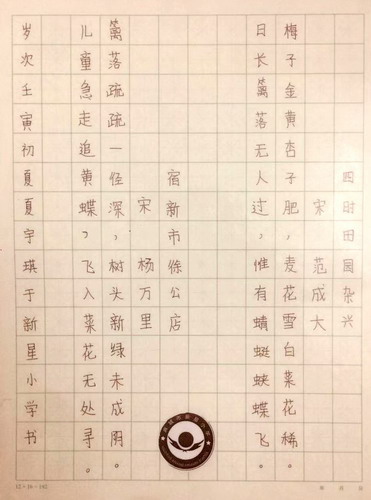 四时田园杂兴
宋 范成大
梅子金黄杏子肥，麦花雪白菜花稀。
日长篱落无人过，惟有蜻蜓蛱蝶飞。
宿新市徐公店
宋 杨万里
篱落疏疏一径深，树头新绿未成阴。
儿童急走追黄蝶，飞入菜花无处寻。
岁次壬寅初夏夏宇琪于新星小学书
12×16=192